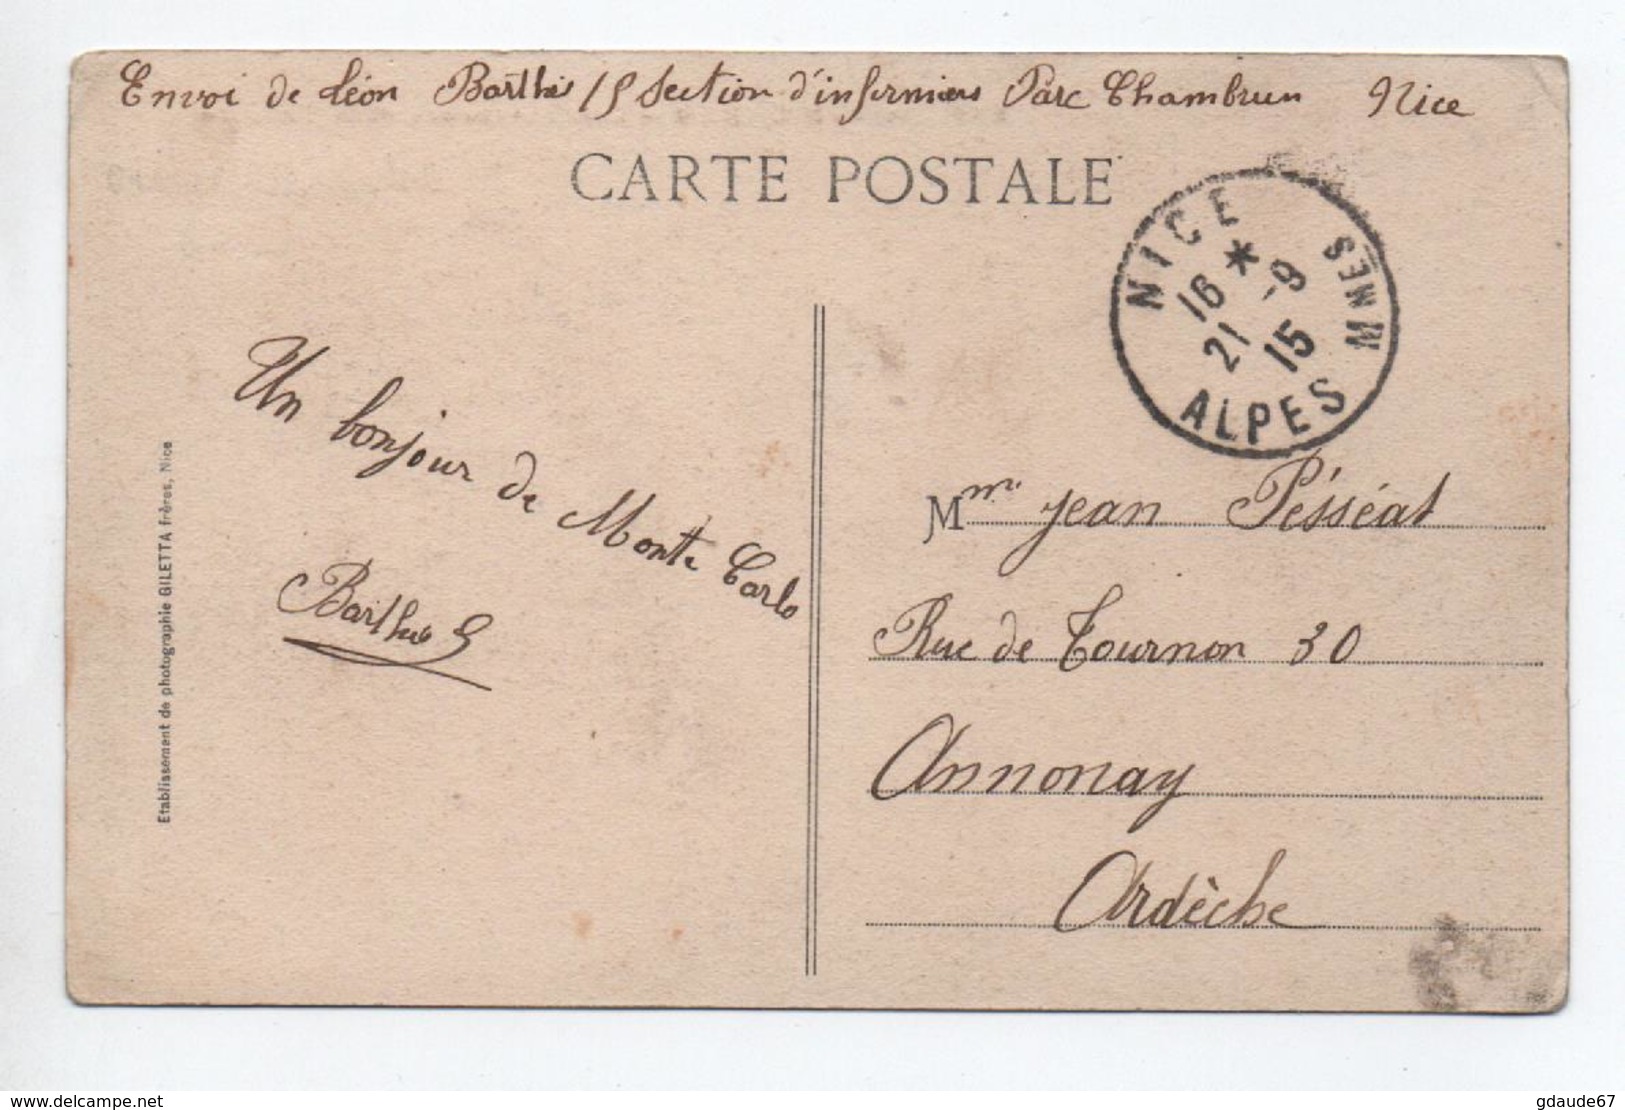 Envoi de Léon Barthés 15 Section d'infirmiers Parc Chambrun Nice
CARTE POSTALE
NICE
16 * 21 -9 15
ALPES MMES
Un bonjour de Monte Carlo
Barthés
Mme Jean Pésséat
Rue de Tournon 30
Annonay
Ardèche
Etablissement de photographie GILETTA frères, Nice
www.delcampe.net
gdaude67